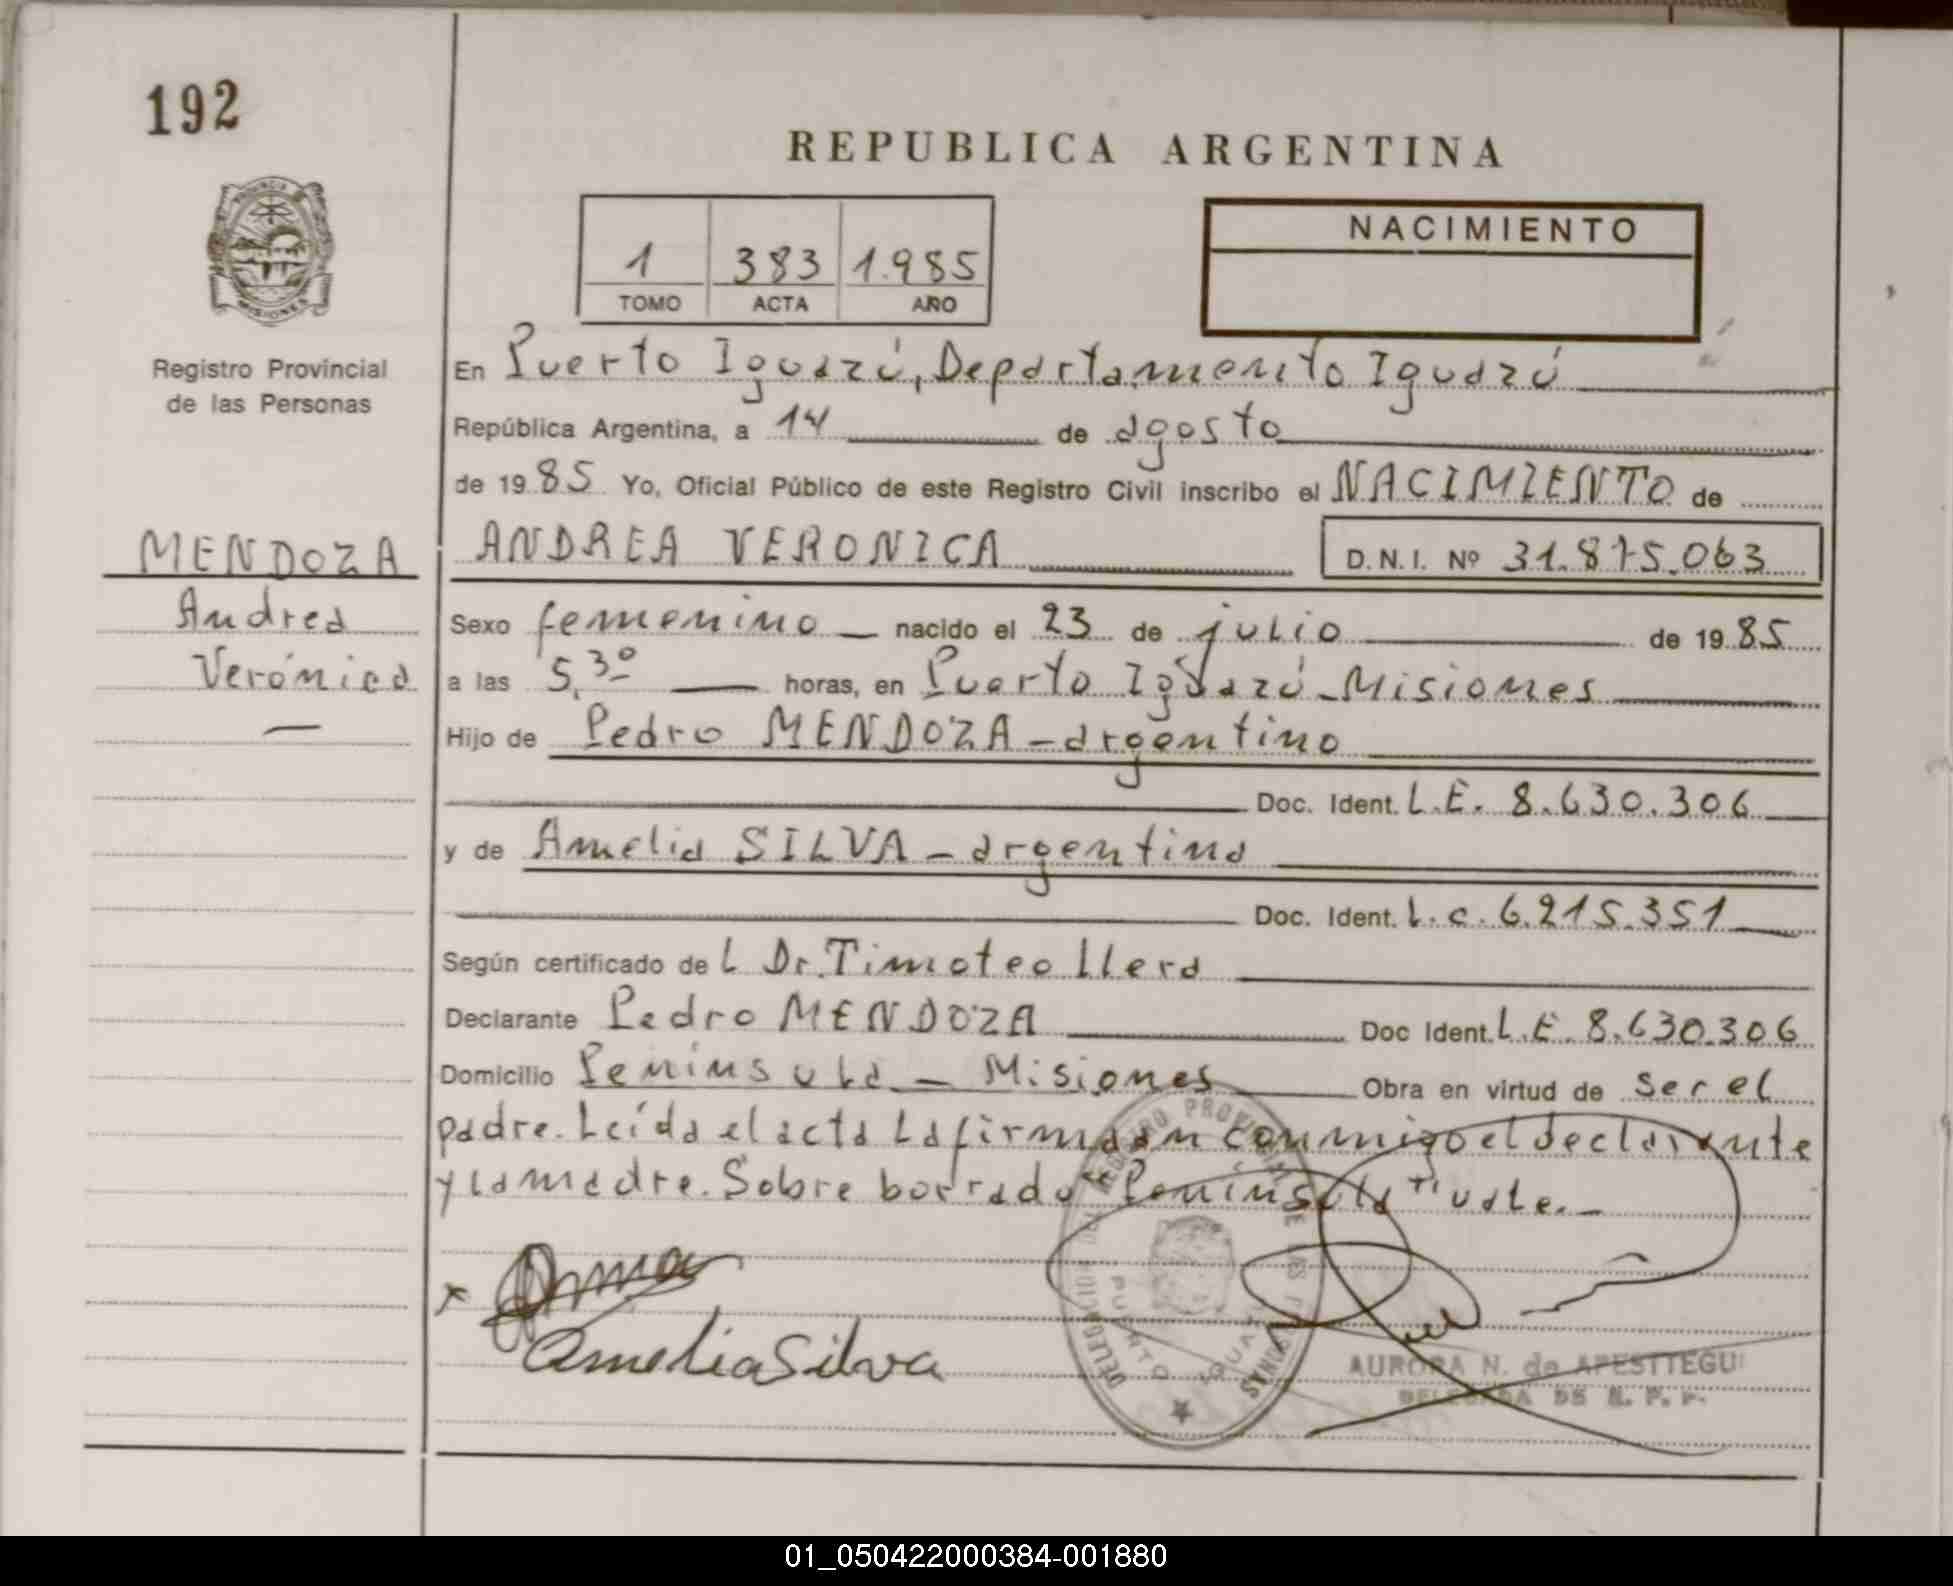 192
REPUBLICA ARGENTINA
PROVINCIA DE
MISIONES
1 383 1.985
TOMO ACTA AÑO
NACIMIENTO
Registro Provincial
de las Personas
En Puerto Iguazú, Departamento Iguazú
República Argentina, a 14 de agosto
de 1985 Yo, Oficial Público de este Registro Civil inscribo el NACIMIENTO de
MENDOZA
Andrea
Verónica
ANDREA VERONICA D.N.I. Nº 31.875.063
Sexo femenino nacido el 23 de julio de 1985
a las 5,30 horas, en Puerto Iguazú - Misiones
Hijo de Pedro MENDOZA - argentino
Doc. Ident. L.E. 8.630.306
y de Amelia SILVA - argentina
Doc. Ident. L.C. 6.215.351
Según certificado del Dr. Timoteo Llera
Declarante Pedro MENDOZA Doc Ident. L.E. 8.630.306
Domicilio Península - Misiones Obra en virtud de ser el
padre. Leída el acta la firman conmigo el declarante
y la madre. Sobre borrado "Península" vale.-
x
Amelia Silva
DELEGACION DEL REGISTRO PROVINCIAL DE LAS PERSONAS
PUERTO IGUAZU
AURORA N. de APESTTEGUI
DELEGADA DE R. P. P.
01_050422000384-001880